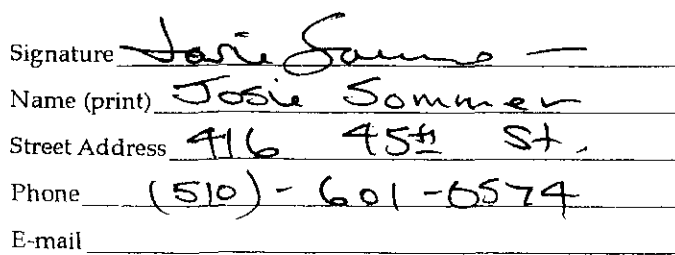 Signature Josie Somme
Name (print) Josie Sommer
Street Address 416 45th St.
Phone (510) - 601 - 0574
E-mail